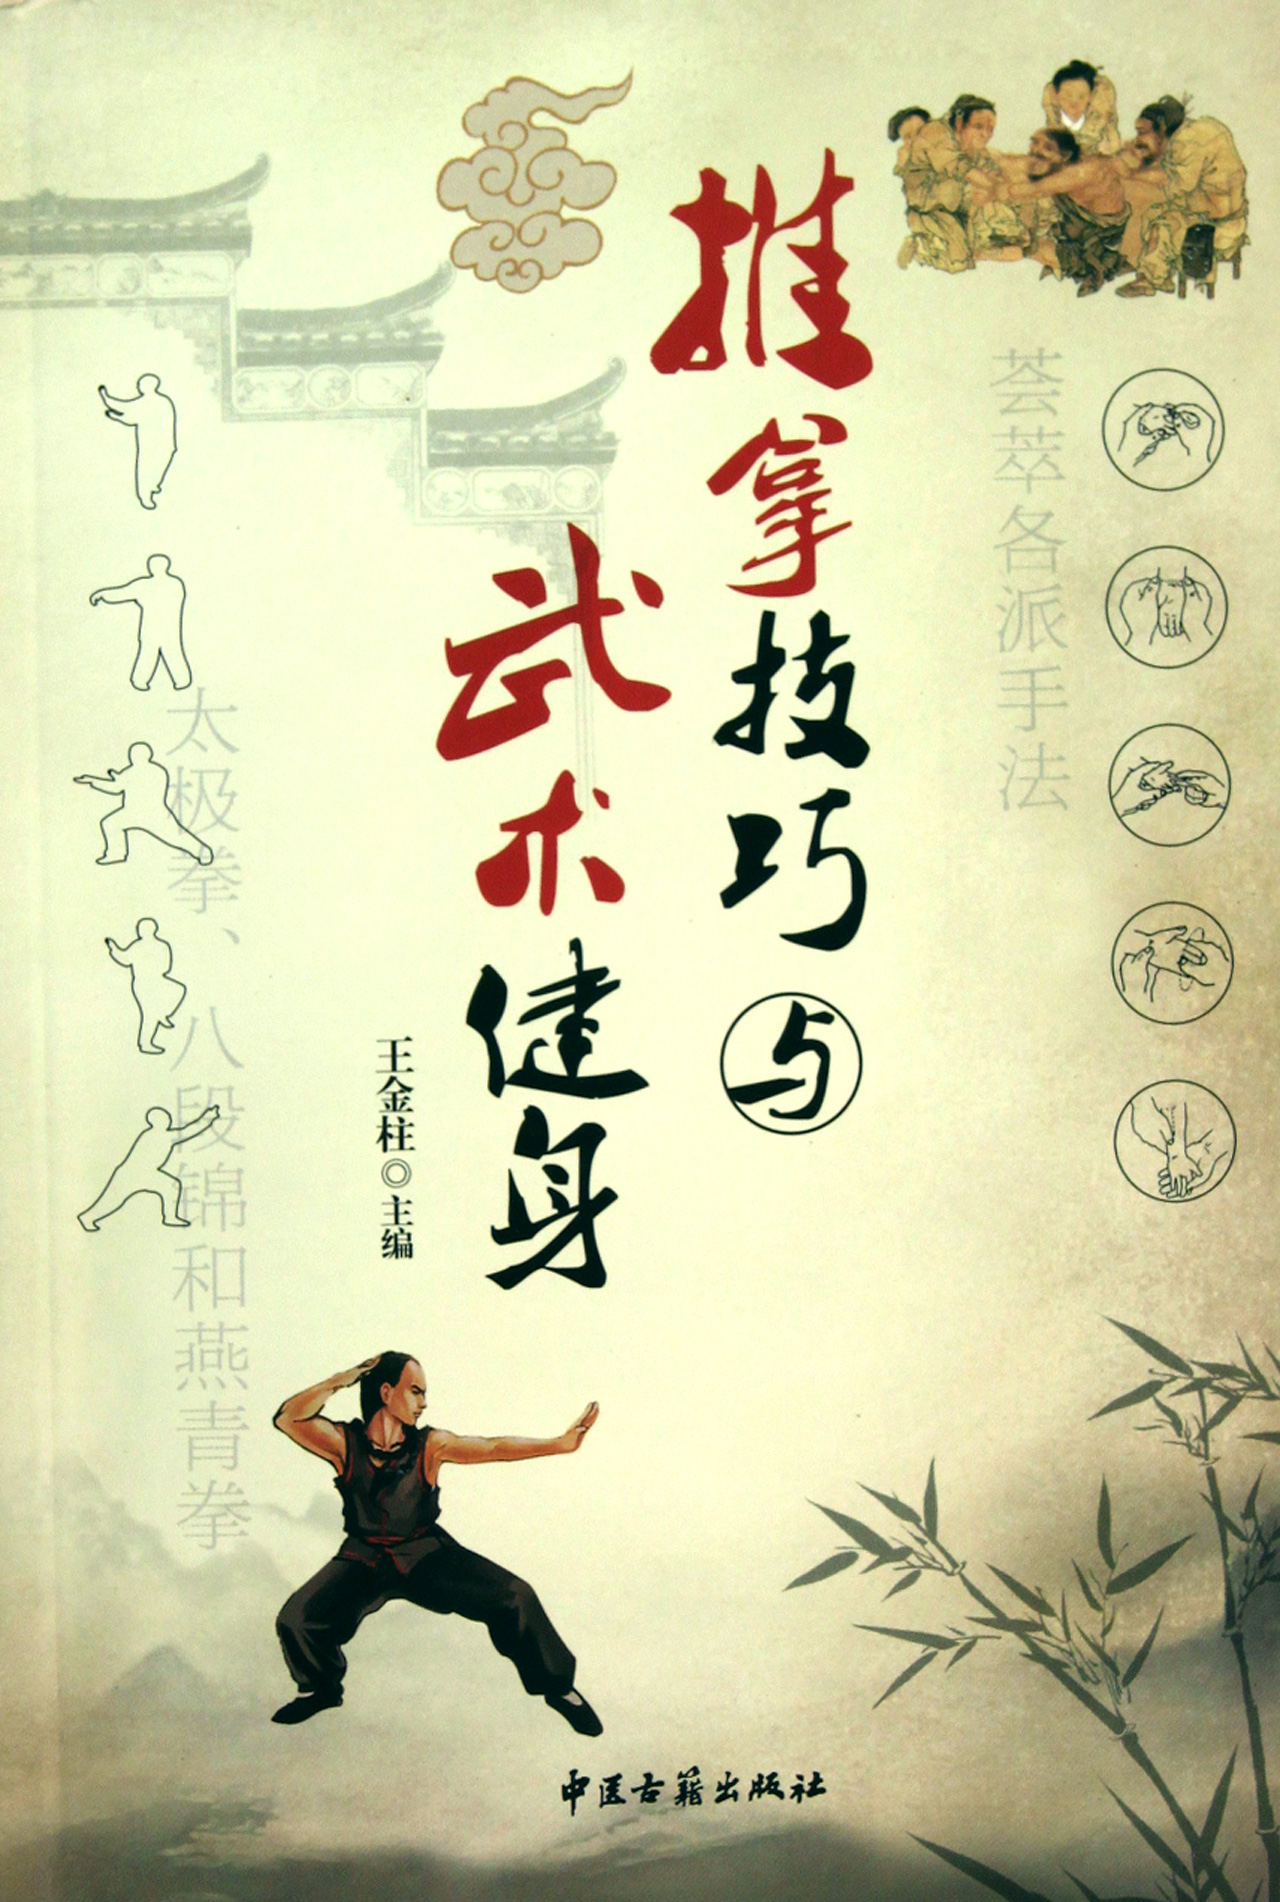 荟萃各派手法
推拿技巧与
武术健身
王金柱◎主编
太极拳、八段锦和燕青拳
中医古籍出版社